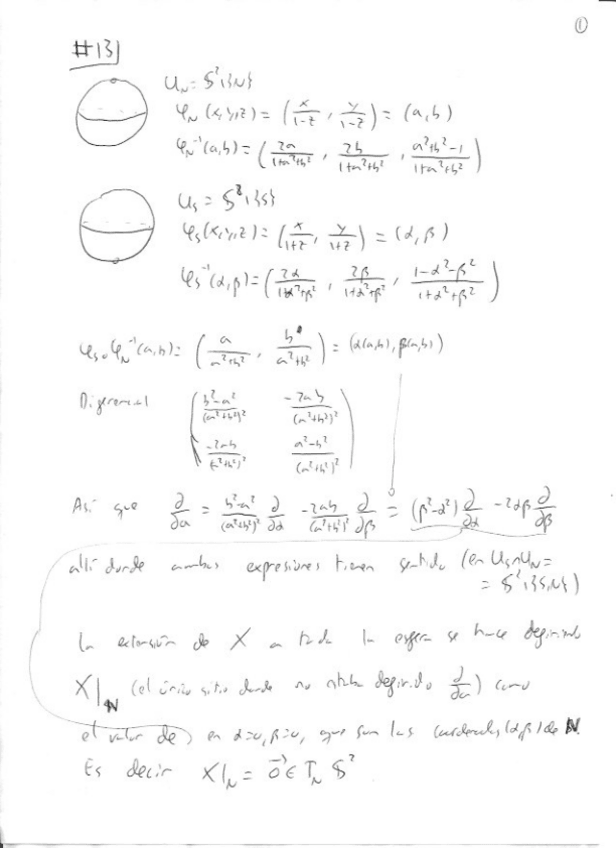 ①
#131
U_N = S²\{N}
φ_N(x,y,z) = (x/(1-z), y/(1-z)) = (a,b)
φ_N⁻¹(a,b) = (2a/(1+a²+b²), 2b/(1+a²+b²), (a²+b²-1)/(1+a²+b²))
U_S = S²\{S}
φ_S(x,y,z) = (x/(1+z), y/(1+z)) = (α,β)
φ_S⁻¹(α,β) = (2α/(1+α²+β²), 2β/(1+α²+β²), (1-α²-β²)/(1+α²+β²))
φ_S∘φ_N⁻¹(a,b) = (a/(a²+b²), b/(a²+b²)) = (α(a,b), β(a,b))
Diferencial ((b²-a²)/(a²+b²)² -2ab/(a²+b²)²
-2ab/(a²+b²)² (a²-b²)/(a²+b²)²)
Así que ∂/∂a = (b²-a²)/(a²+b²)² ∂/∂α -2ab/(a²+b²)² ∂/∂β = (β²-α²) ∂/∂α -2αβ ∂/∂β
allí donde ambas expresiones tienen sentido (en U_S∩U_N =
= S²\{S,N})
La extensión de X a toda la esfera se hace definiendo
X|_N (el único sitio donde no estaba definido ∂/∂a) como
el valor de en α=0, β=0, que son las coordenadas (α,β) de N.
Es decir X|_N = 0⃗ ∈ T_N S²